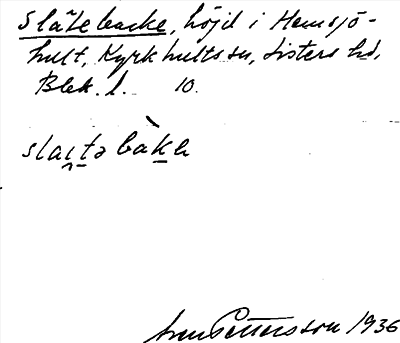 Slätebacke, höjd i Hemsjö-
hult, Kyrkhults sn, Listers hd,
Blek. l. 10.
slaıtə bàkh
Sven Pettersson 1936